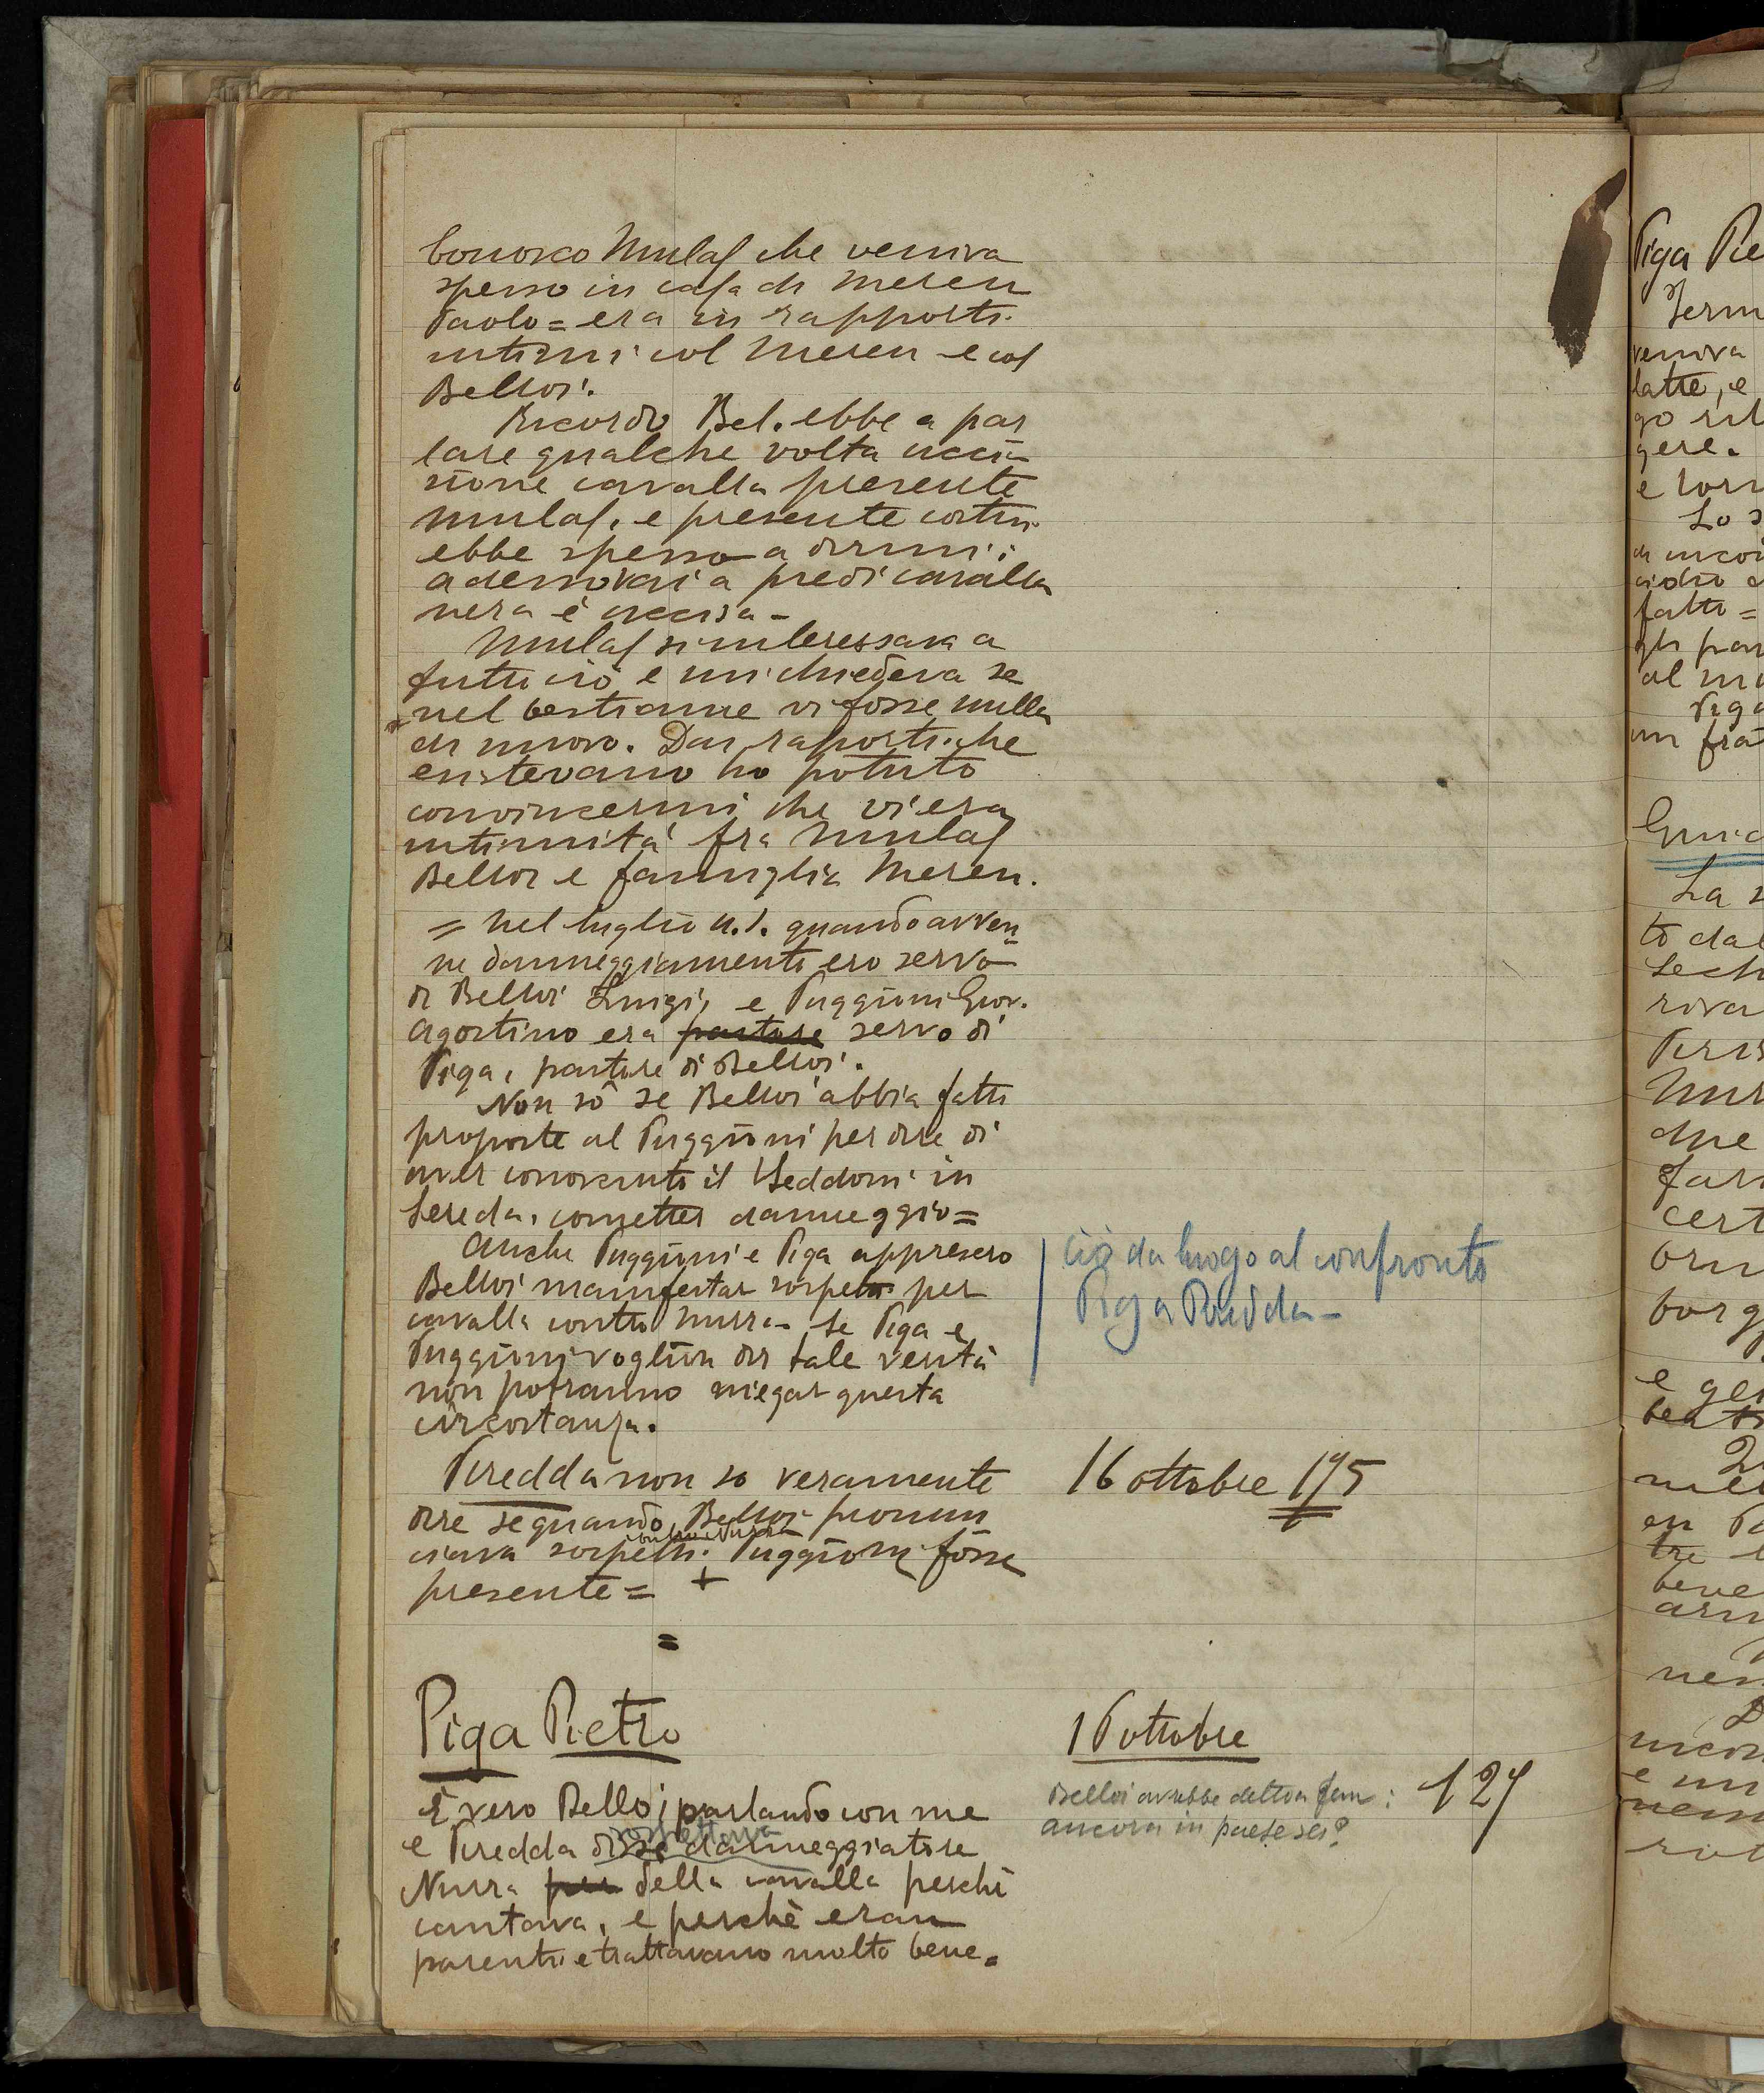 Conosco Mulas che veniva
spesso in casa di Meseu
Paolo = era in rapporti
intimi col Meseu e col
Belloi.
Ricordo Bel. ebbe a par
lare qualche volta ucci-
sione cavalla presente
Mulas, e presente costui
ebbe spesso a dirmi:
adesso vai a piedi cavalla
nera è uccisa -
Mulas si interessava a
tutto ciò e mi chiedeva se
nel bestiame vi fosse nulla
di nuovo. Dai rapporti che
esistevano ho potuto
convincermi che vi era
intimità fra Mulas
Belloi e famiglia Meseu.
= nel luglio u.s. quando avven
ne danneggiamento ero servo
di Belloi Luigi, e Puggioni Giov.
Agostino era pastore servo di
Piga, pastore di Belloi.
Non sò se Belloi abbia fatti
proposte al Puggioni per dire di
aver conosciuto il Seddoni in
Sereda, cometter danneggio =
Anche Puggioni e Piga appresero
Belloi manifestar sospetti per
cavalla contro Nurra - se Piga e
Puggioni voglion dir tale verità
non potranno niegar questa
circostanza.
ciò da luogo al confronto
Piga Piredda -
Piredda non so veramente
dire se quando Belloi pronun
contro Nurra
ciava sospetti Puggioni fosse
presente = +
=
16 ottobre 195
Piga Pietro
16 ottobre
È vero Belloi parlando con me
sospettava
e Piredda disse danneggiatore
Nurra per della cavalla perchè
cantava, e perchè eran
parenti e trattavano molto bene.
Belloi avrebbe detto a fem:
ancora in paese sei?
127
Piga Pie
veniva
latte, e
gere.
fatto =
al mu
Piga
un frat
La
to dal
riva
due
cert
e